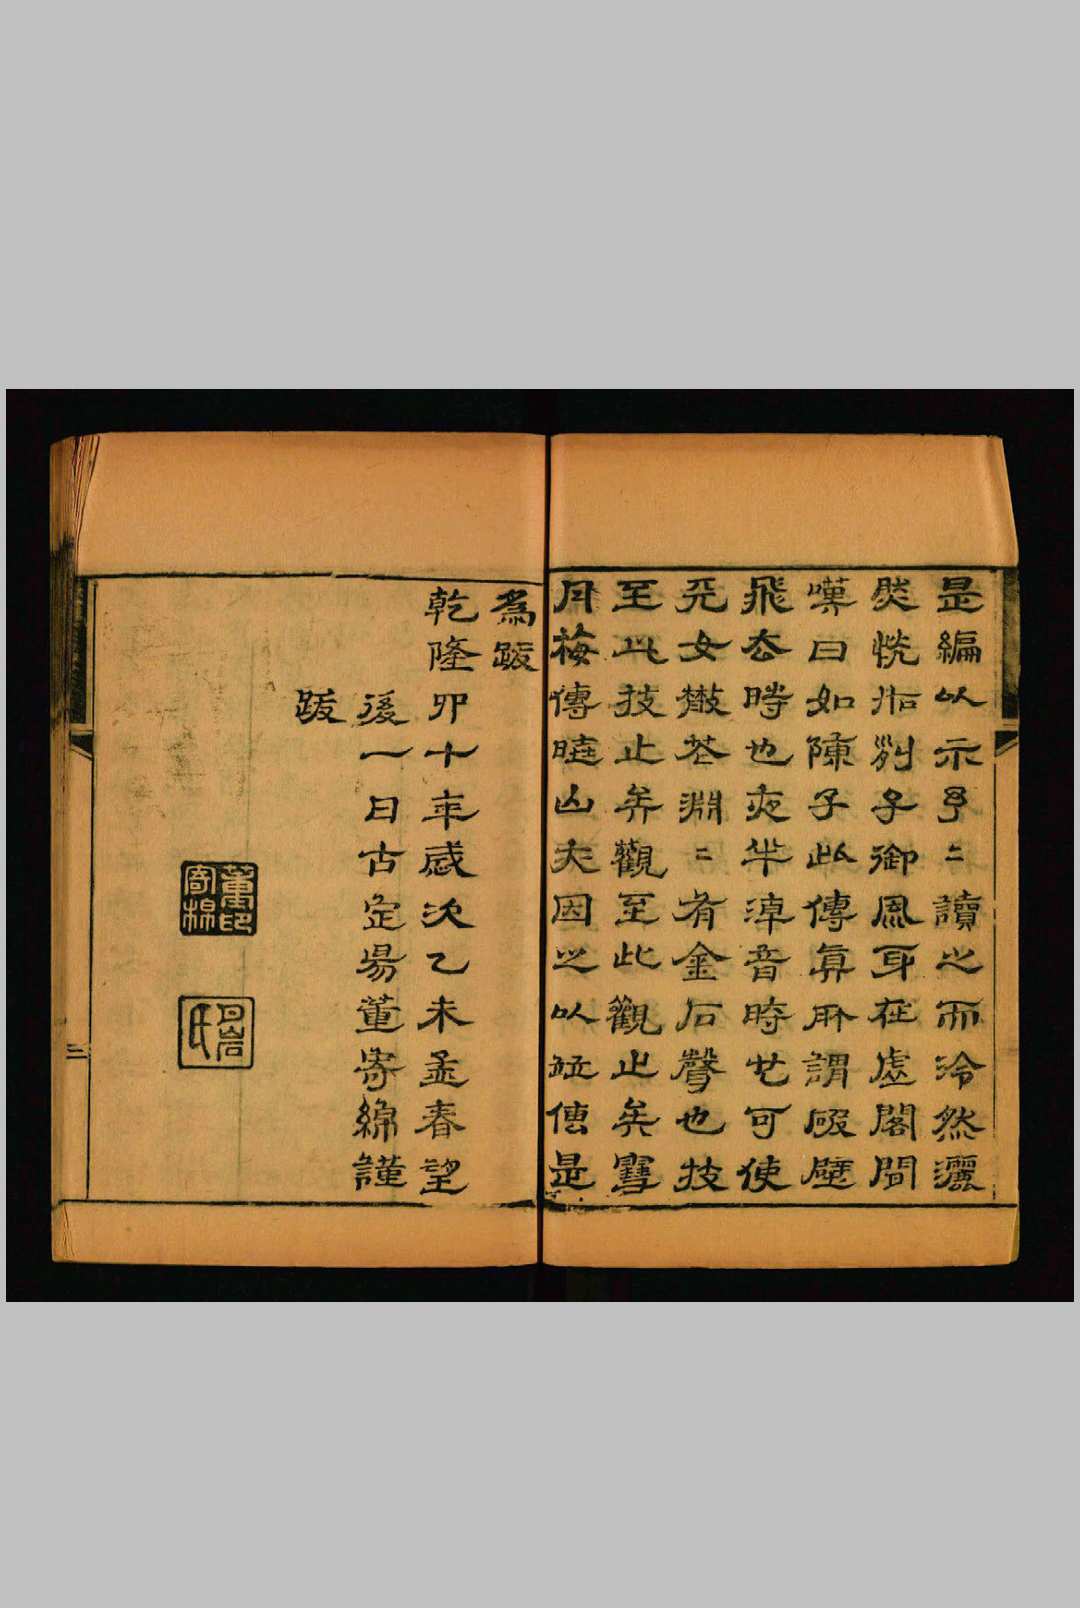 是編以示予二讀之而泠然灑
然恍列子御風耳在虛閣間
嘆曰如陳子此傳真所謂破壁
飛去時也夜半淖音時也可使
元女花淵二有金石聲也技
至此技止矣觀至此觀止矣雪
月梅傳曉山夫因之以並傳是
為跋
乾隆四十年歲次乙未孟春望
後一日古定陽董寄綿謹
跋
董印寄綿
月岩氏
三